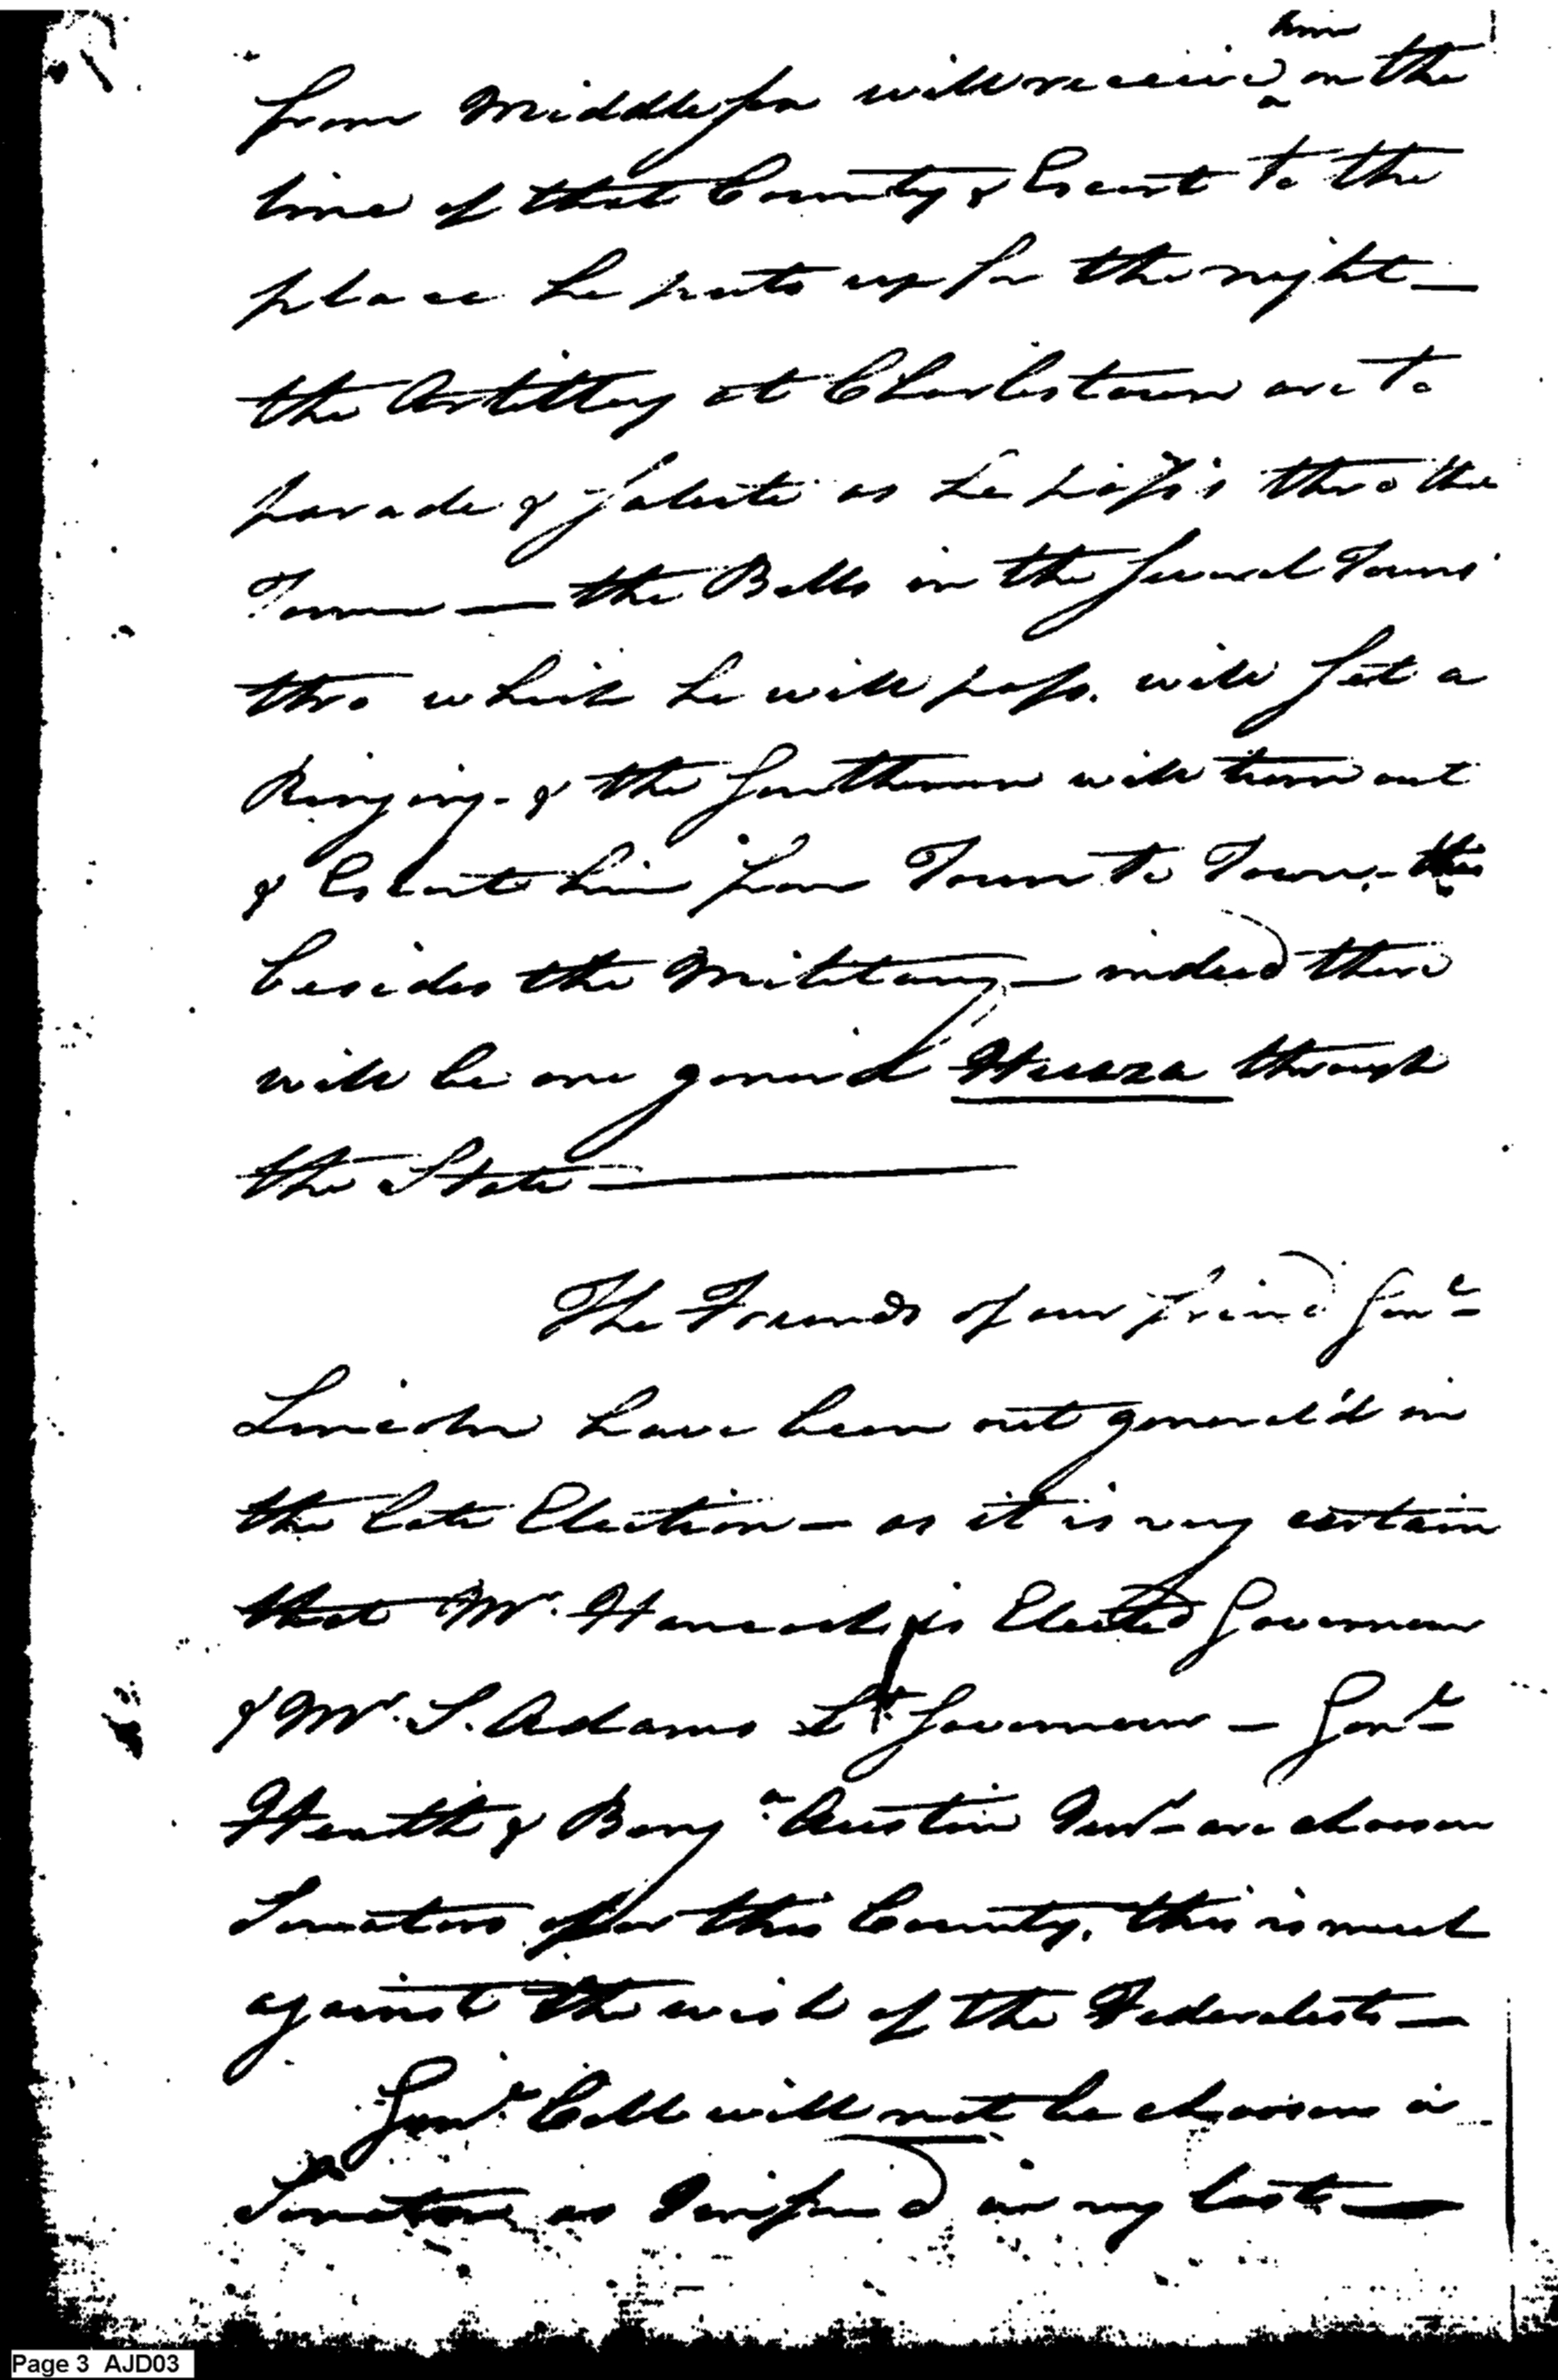 from Middlesex will receive him on the
line of that County & Escort to the
place he puts up for the night—
the Artillery at Charlestown are to
parade & Salute as he passes thro the
Town — the Bells in the Several Towns
thro which he will pass. will Set a
Ringing - & the Gentlemen will turn out
& Escort him from Town to Town, - this
besides the Military — indeed there
will be one general Huzza through
the State —
The Friends of our friend Genl
Lincoln have been out general'd in
the late Election — as it is very certain
that Mr. Hancock is Elected Governour
& Mr. S. Adams Lt Governour — Genl
Heath & Benja Austin Junr are choosen
Senators for this County, this is much
against the wish of the Federalists —
Genl Cobb will not be choosen a
Senator as I inform'd in my last —
Page 3 AJD03